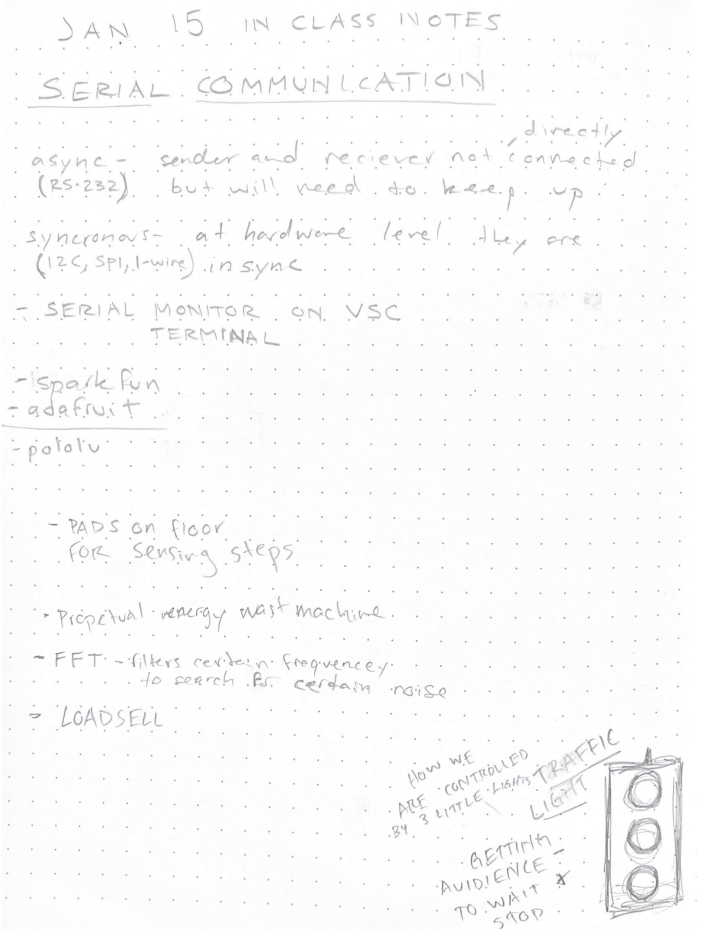 JAN 15 IN CLASS NOTES
SERIAL COMMUNICATION
directly
async - sender and reciever not connected
(RS-232) but will need to keep up
syncronous - at hardware level they are
(I2C, SPI, 1-wire) in sync
- SERIAL MONITOR ON VSC
TERMINAL
- sparkfun
- adafruit
- pololu
- PADS on floor
FOR sensing steps
- Prepetual energy wast machine
- FFT - filters certain frequencey
to search for certain noise
- LOADSELL
HOW WE
ARE CONTROLLED
BY 3 LITTLE LIGHTS
TRAFFIC
LIGHT
GETTING
AUIDIENCE
TO WAIT
STOP